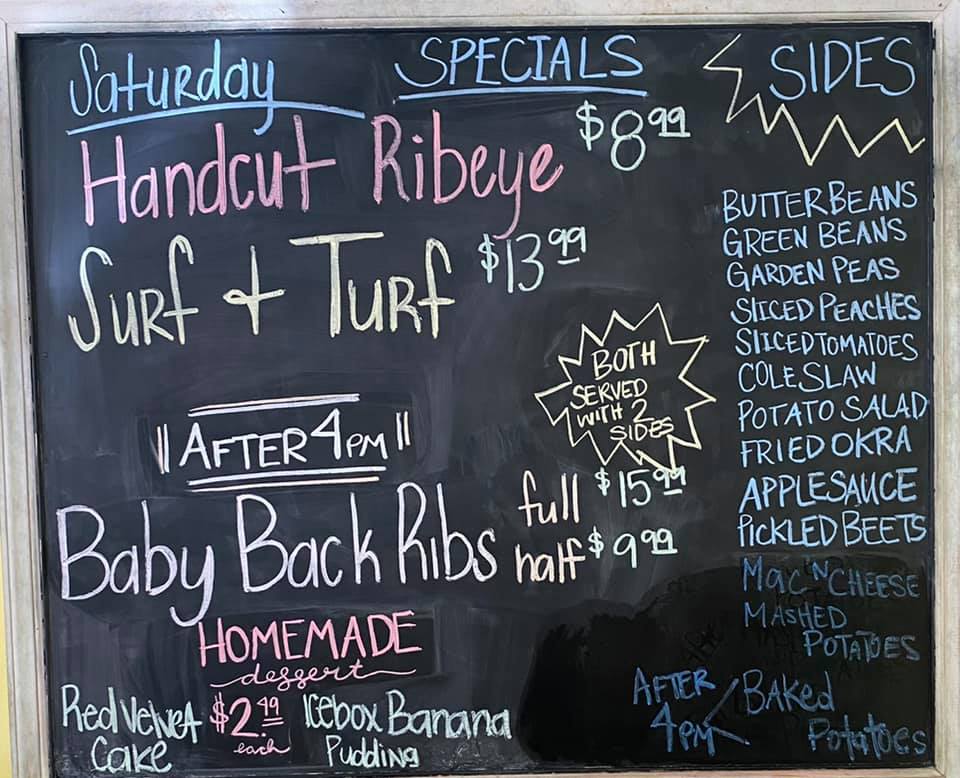 Saturday SPECIALS
Handcut Ribeye $8.99
Surf & Turf $13.99
BOTH
SERVED
WITH 2
SIDES
AFTER 4PM
Baby Back Ribs full $15.99
half $9.99
HOMEMADE
dessert
Red Velvet
Cake
$2.49
each
Icebox Banana
Pudding
SIDES
BUTTER BEANS
GREEN BEANS
GARDEN PEAS
SLICED PEACHES
SLICED TOMATOES
COLE SLAW
POTATO SALAD
FRIED OKRA
APPLESAUCE
PICKLED BEETS
MAC 'N CHEESE
MASHED
POTATOES
AFTER
4PM
BAKED
Potatoes